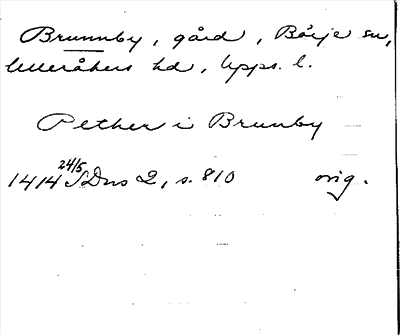 Brunnby, gård, Börje sn,
Ulleråkers hd, Upps. l.
Pether i Brunby
1414 24/5 SDns 2, s. 810 orig.